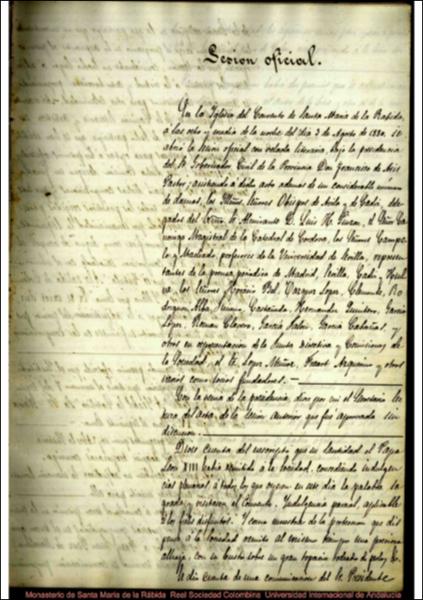 Sesion oficial.
En la Iglesia del Convento de Santa Maria de la Rabida,
a las ocho y media de la noche del dia 3 de Agosto de 1880, se
abrió la sesion oficial con velada literaria, bajo la presidencia
del Sr. Gobernador Civil de la Provincia Don Francisco de Asis
Pastor; asistiendo á dicho acto ademas de un considerable numero
de damas, los Illmos. Señores Obispos de Avila y de Cadiz, dele-
gados del Almirante D. Luis H. Pinzon, el
Magistral de la Catedral de Cordova, los Señores Campe-
lo y Machado, profesores de la Universidad de Sevilla, represen-
tantes de la prensa periodica de Madrid, Sevilla, Cadiz, Huel-
va, los Señores Bel, Vazquez Lopez, Ro-
Alba, Hernandez Quintero, Garcia
Lopez, Roman Clavero, Garcia Garcia Cabañas, y
otros en representacion de la Junta Directiva y Comisiones de
la Sociedad, el Sr. Lopez Muñoz, y otros
varios como socios fundadores. —
Con la venia de la presidencia, diose por mi el Secretario lec-
tura del Acta de la sesion anterior que fue aprobada sin
discusion.
Diose cuenta del que su Santidad el Papa
Leon XIII habia remitido á la Sociedad, concediendo indulgen-
cias plenarias á todos los que en ese dia la palabra sa-
grada y visitaren el Convento, Indulgencia parcial, aplicable
á los fieles difuntos. Y como muestra de la que dis-
pensa á la Sociedad remitió al mismo tiempo una preciosa
alhaja, con su busto sobre un gran topacio rodeado de perlas &.
A dió cuenta de una comunicacion del Sr. Presidente
Monasterio de Santa María de la Rábida Real Sociedad Colombina Universidad Internacional de Andalucía